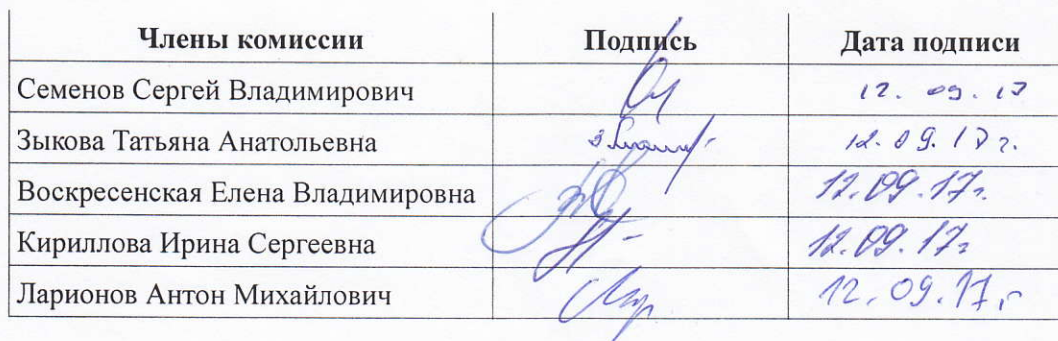 Члены комиссии Подпись Дата подписи
Семенов Сергей Владимирович 12. 09. 17
Зыкова Татьяна Анатольевна 12.09.17г.
Воскресенская Елена Владимировна 12.09.17г.
Кириллова Ирина Сергеевна 12.09.17г
Ларионов Антон Михайлович 12.09.17г